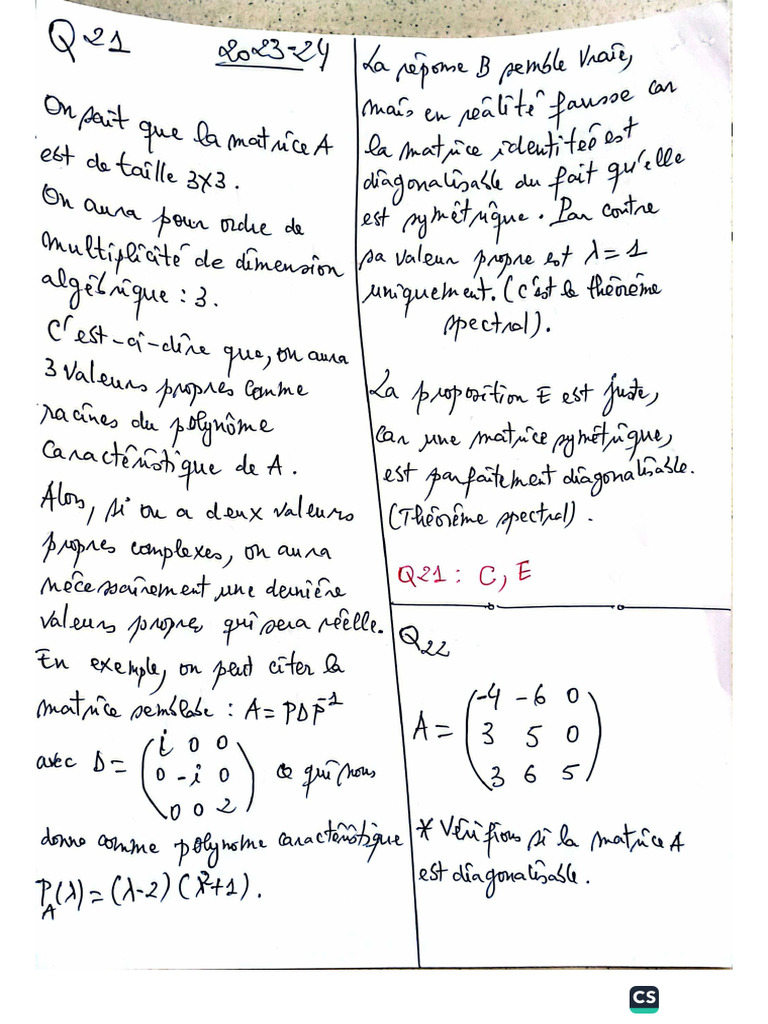 Q21 2023-24
On sait que la matrice A
est de taille 3x3.
On aura pour ordre de
multiplicité de dimension
algébrique : 3.
C'est-à-dire que, on aura
3 valeurs propres comme
racines du polynôme
caractéristique de A.
Alors, si on a deux valeurs
propres complexes, on aura
nécessairement une dernière
valeurs propres, qui sera réelle.
En exemple, on peut citer la
matrice semblabe : A = PDP⁻¹
avec D = (i 0 0
0 -i 0 ce qui nous
0 0 2)
donne comme polynome caractéristique
P_A(λ) = (λ-2)(λ²+1).
La réponse B semble vraie,
mais en réalité fausse car
la matrice identiteé est
diagonalisable du fait qu'elle
est symétrique. Par contre
sa valeur propre est λ = 1
uniquement. (C'est le théorème
spectral).
La proposition E est juste,
car une matrice symétrique,
est parfaitement diagonalisable.
(Théorème spectral).
Q21 : C, E
Q22
A = (-4 -6 0
3 5 0
3 6 5)
* Vérifions si la matrice A
est diagonalisable.
CS